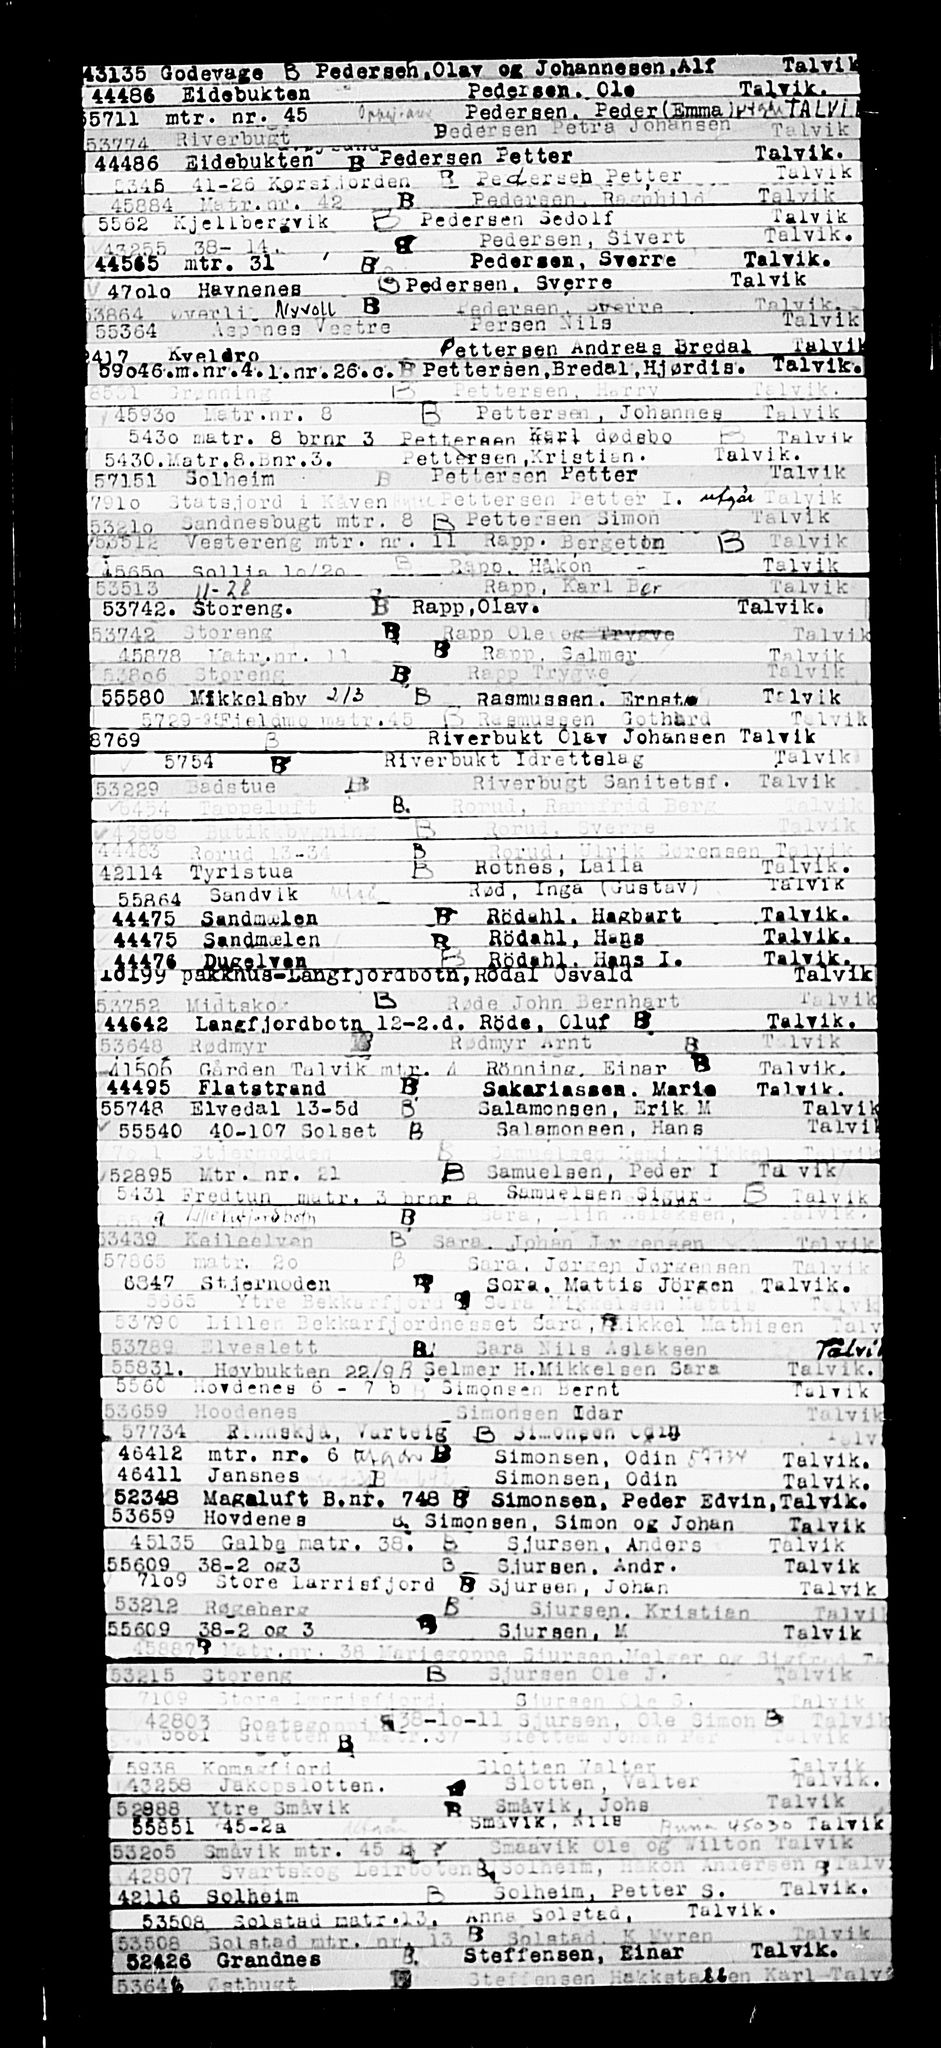 43135 Godevage B Pedersen, Olav og Johannesen, Alf Talvik
44486 Eidebukten Pedersen. Ole Talvik.
55711 mtr. nr. 45 Pedersen. Peder (Emma) utgår TALVIK
53774 Riverbugt Pedersen Petra Johansen Talvik
44486 Eidebukten B Pedersen Petter Talvik.
5345 41-26 Korsfjorden B Pedersen Petter Talvik
45884 Matr.nr. 42 B Pedersen, Ragnhild Talvik
5562 Kjellbergvik B Pedersen Sedolf Talvik
43255 38-14. B Pedersen, Sivert Talvik.
44565 mtr. 31 B Pedersen, Sverre Talvik.
47010 Havnenes Pedersen. Sverre Talvik
53864 Øverli Nyvoll B Pedersen, Sverre Talvik.
55364 Aspenes Vestre Persen Nils Talvik
2417 Kveldro Pettersen Andreas Bredal Talvik
59046.m.nr.4.l.nr.26.c. B Pettersen, Bredal, Hjørdis. Talvik.
8531 Grønning B Pettersen, Harry Talvik.
45930 Matr.nr. 8 B Pettersen, Johannes Talvik
5430 matr. 8 brnr 3 Pettersen Karl dødsbo B Talvik
5430.Matr.8.Bnr.3. Pettersen, Kristian. Talvik.
57151 Solheim B Pettersen Petter Talvik
7910 Statsjord i Kåven Pettersen Petter I. utgår Talvik
53210 Sandnesbugt mtr. 8 B Pettersen Simon Talvik
53512 Vestereng mtr. nr. 11 Rapp. Bergeton B Talvik
45650 Sollia 10/20 B Rapp, Håkon - Talvik
53513 11-28 Rapp, Karl Ber Talvik
53742. Storeng. B Rapp, Olav. Talvik.
53742 Storeng B Rapp Ole og Trygve Talvik
45878 Matr.nr. 11 B Rapp, Selmer Talvik
53806 Storeng B Rapp Trygve Talvik
55580 Mikkelsby 2/3 B Rasmussen. Ernst Talvik
5729 Fjeldmo matr.45 B Rasmussen Gothard Talvik
8769 B Riverbukt Olav Johansen Talvik
5754 B Riverbukt Idrettslag Talvik
53229 Badstue B Riverbugt Sanitetsf. Talvik
5454 Tappeluft B. Rorud, Rannfrid Berg Talvik
43868 Butikkbygning B Rorud, Sverre Talvik
44483 Rorud 13-34 B Rorud, Ulrik Sørensen Talvik
42114 Tyristua B Rotnes, Laila Talvik.
55864 Sandvik Rød, Inga (Gustav) Talvik
44475 Sandmælen B Rödahl. Hagbart Talvik.
44475 Sandmælen B Rödahl, Hans Talvik.
44476 Dugelven B Rödahl. Hans I. Talvik.
10199 pakkhus-Langfjordbotn, Rödal Osvald Talvik
53752 Midtskog B Røde John Bernhart Talvik
44642 Langfjordbotn 12-2.d. Röde, Oluf B Talvik.
53648 Rødmyr Rødmyr Arnt B Talvik
41506 Gården Talvik mtr. 4 Rönning, Einar B Talvik.
44495 Flatstrand B Sakariassen. Marie Talvik.
55748 Elvedal 13-5d B Salamonsen, Erik M Talvik
55540 40-107 Solset B Salamonsen, Hans Talvik
Stjernodden B Samuelsen Mikkel Talvik
52895 Mtr. nr. 21 B Samuelsen, Peder I Talvik
5431 Fredtun matr. 3 brnr 8 Samuelsen Sigurd B Talvik
B Sara, Elin Aslaksen, Talvik.
53439 Kaileelven B Sara, Johan Jørgensen Talvik
57865 matr. 20 B Sara, Jørgen Jørgensen Talvik
6847 Stjernoden B Sara. Mattis Jörgen Talvik.
5665 Ytre Bekkarfjord B Sara Mikkelsen Mattis Talvik
53790 Lille Bekkarfjordnesset Sara, Mikkel Mathisen Talv
53789 Elveslett B Sara Nils Aslaksen Talvik
55831. Høvbukten 22/9 B Selmer H.Mikkelsen Sara Talvik.
5560 Hovdenes 6 - 7 b B Simonsen Bernt Talvik
53659 Hoodenes Simonsen Idar Talvik
57734 Rinnskjå, Varteig B Simonsen Odin Talv
46412 mtr. nr. 6 utgår B Simonsen, Odin 57734 Talvik.
46411 Jansnes B Simonsen, Odin Talvik.
52348 Magaluft B.nr. 748 B Simonsen, Peder Edvin, Talvik.
53659 Hovdenes B. Simonsen, Simon og Johan Talvik
45135 Galba matr. 38. B Sjursen, Anders Talvik
55609 38-2 og3 B Sjursen. Andr. Talvik
7109 Store Larrisfjord B Sjursen, Johan Talvik
53212 Røgeberg B Sjursen. Kristian Talvik
55609 38-2 og 3 B Sjursen, M Talvik
45887 B Matr.nr. 38 Sjursen, Helger og Sigfred Ta
53215 Storeng B Sjursen Ole J. Talvik
7109 Store Lerrisfjord. Sjursen Ole S. Talvik
42803 38-10-11 Sjursen, Ole Simon B Talvik
5661 Sletten Matr.37 B Slettem Johan Per Talvik
5938 Komagfjord Slotten Valter Talvik
43258 Jakopslotten. Slotten, Valter Talvik.
52888 Ytre Småvik B Småvik, Johs Talvik
55851 45-2a Småvik, Nils Anna 45030 Talvik
53205 Småvik mtr. 45 Smaavik Ole og Wilton Talvik
42807 Svartskog Leirbotten B Solheim, Håkon Andersen B Talv
42116 Solheim B Solheim, Petter S. Talvik.
53508 Solstad matr.13. Anna Solstad, Talvik.
53508 Solstad mtr. nr. 13 B Solstad. K Myren Talvik
52426 Grandnes B. Steffensen, Einar Talvik.
53646 Østbugt Steffensen Hakkstabben Karl Talv